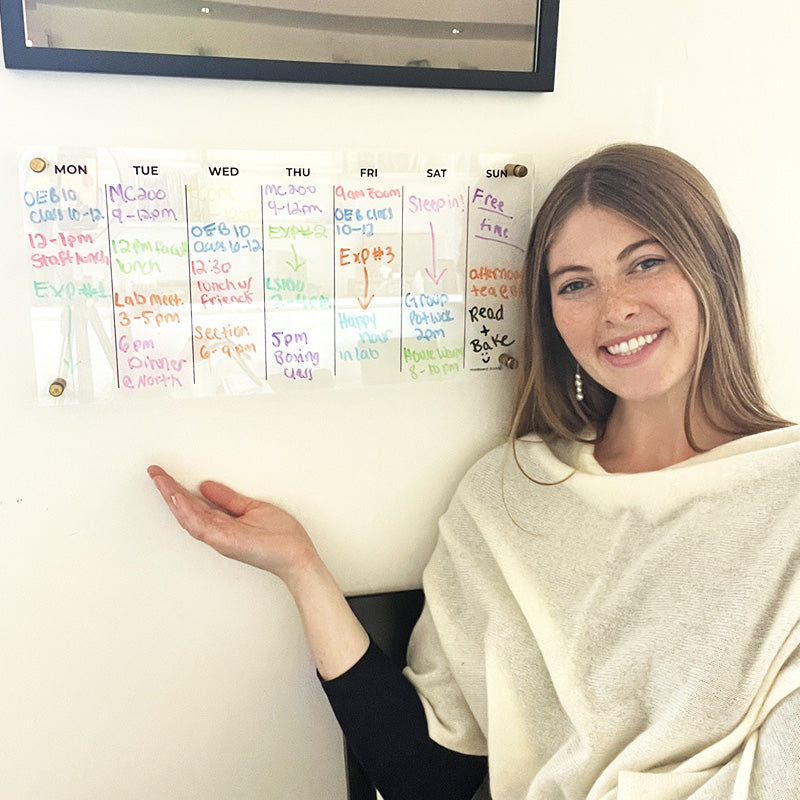 MON
OEB10
Class 10-12
12-1pm
Staff lunch
Exp#1
TUE
MC200
9-12pm
12pm Facult
lunch
Lab meet.
3-5pm
6pm
Dinner
@North
WED
OEB10
Class 10-12
12:30
lunch w/
friends
Section
6-9pm
THU
MC200
9-12pm
Exp#2
LS100
2-4pm
5pm
Boxing
class
FRI
9am Zoom
OEB Class
10-12
Exp #3
Happy
hour
in lab
SAT
Sleep in!
Group
Potluck
2pm
House Warm
8-10pm
SUN
Free
time
afternoon
tea @
Read
+
Bake